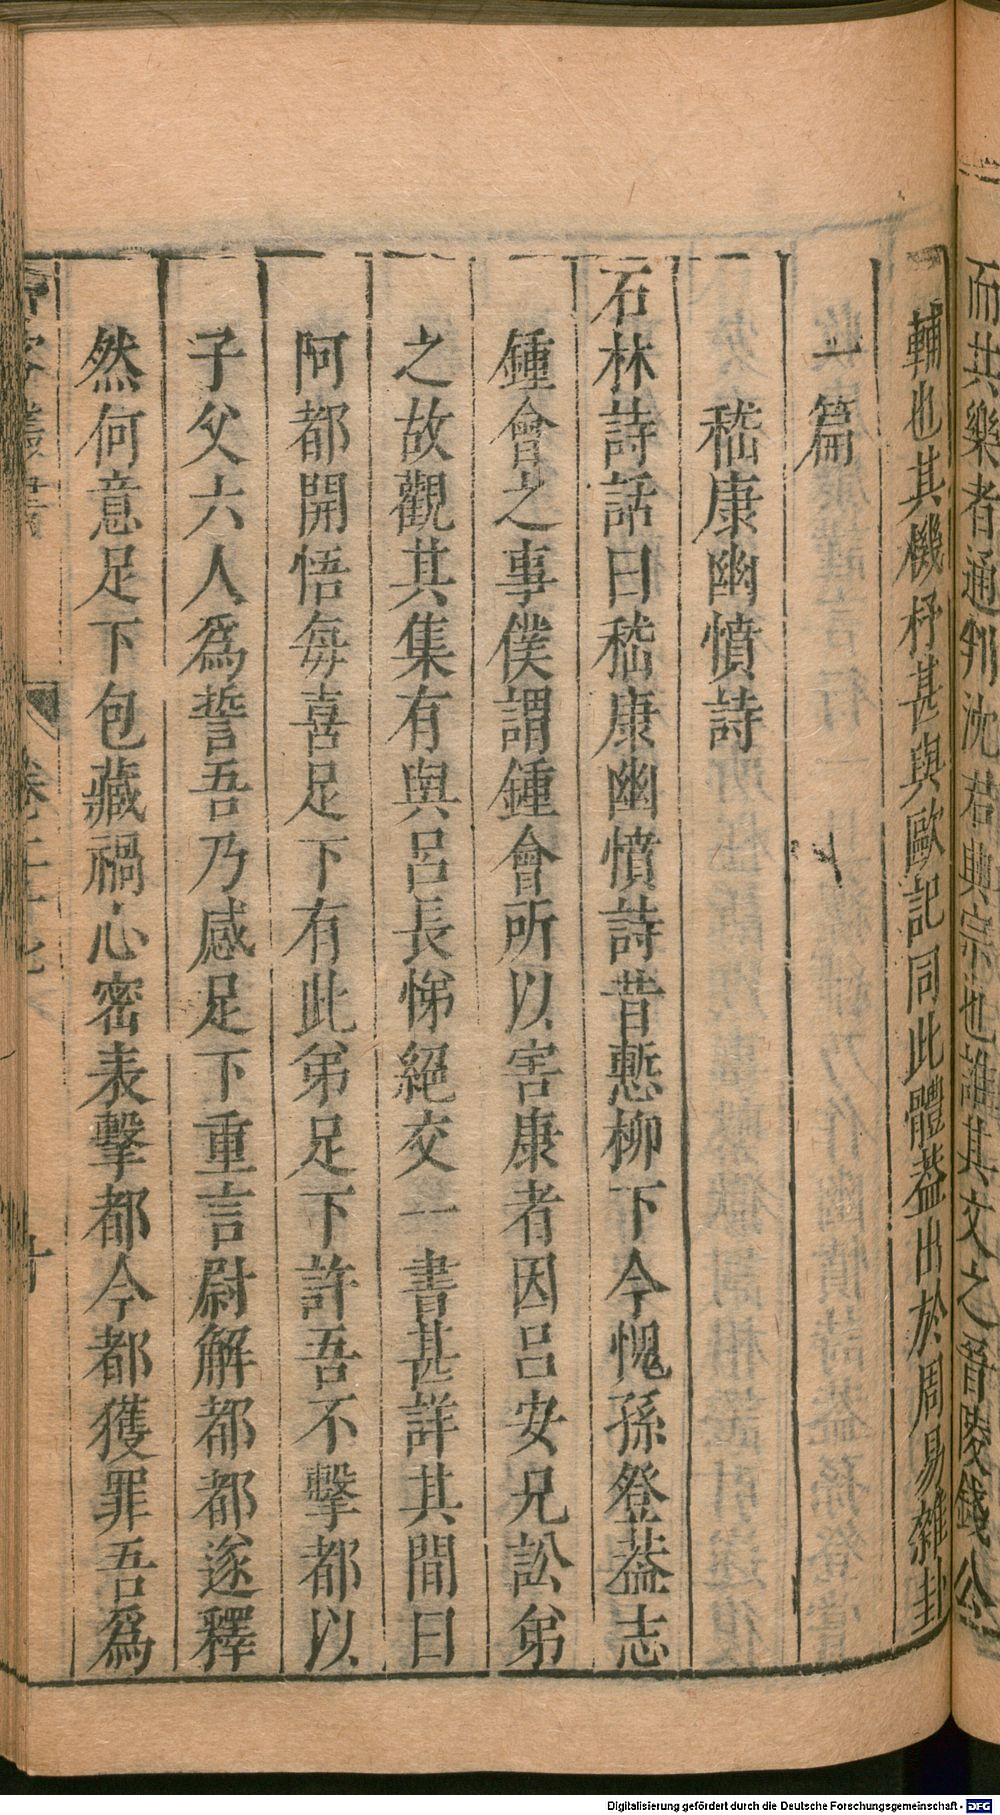 而共樂者通判沈君興宗也誰其文之晉陵錢公
輔也其機杼甚與歐記同此體葢出於周易雜卦
一篇
嵇康幽憤詩
石林詩話曰嵇康幽憤詩昔慙柳下今愧孫登葢志
鍾會之事僕謂鍾會所以害康者因呂安兄訟弟
之故觀其集有與呂長悌絕交一書甚詳其間曰
阿都開悟每喜足下有此弟足下許吾不擊都以
子父六人爲誓吾乃感足下重言尉解都都遂釋
然何意足下包藏禍心密表擊都今都獲罪吾爲
Digitalisierung gefördert durch die Deutsche Forschungsgemeinschaft - DFG